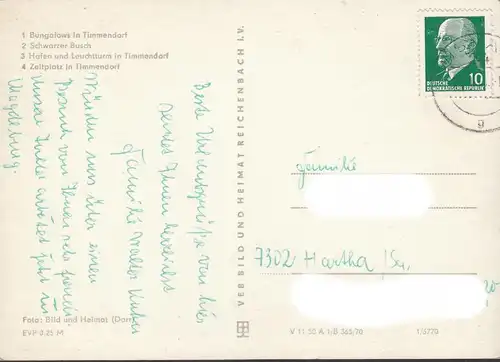 1 Bungalows in Timmendorf
2 Schwarzer Busch
3 Hafen und Leuchtturm in Timmendorf
4 Zeltplatz in Timmendorf
Beste Urlaubsgrüße von hier
sendet Ihnen herzlichst
Familie Walter
Würden uns über einen
von Ihnen sehr freuen
Unsere arbeitet jetzt in
Magdeburg.
Foto: Bild und Heimat
EVP 0.25 M
VEB BILD UND HEIMAT REICHENBACH i. V.
DEUTSCHE
DEMOKRATISCHE REPUBLIK
10
Familie
7302 Hartha
V 11 50 A 1/B 365/70
1/3770